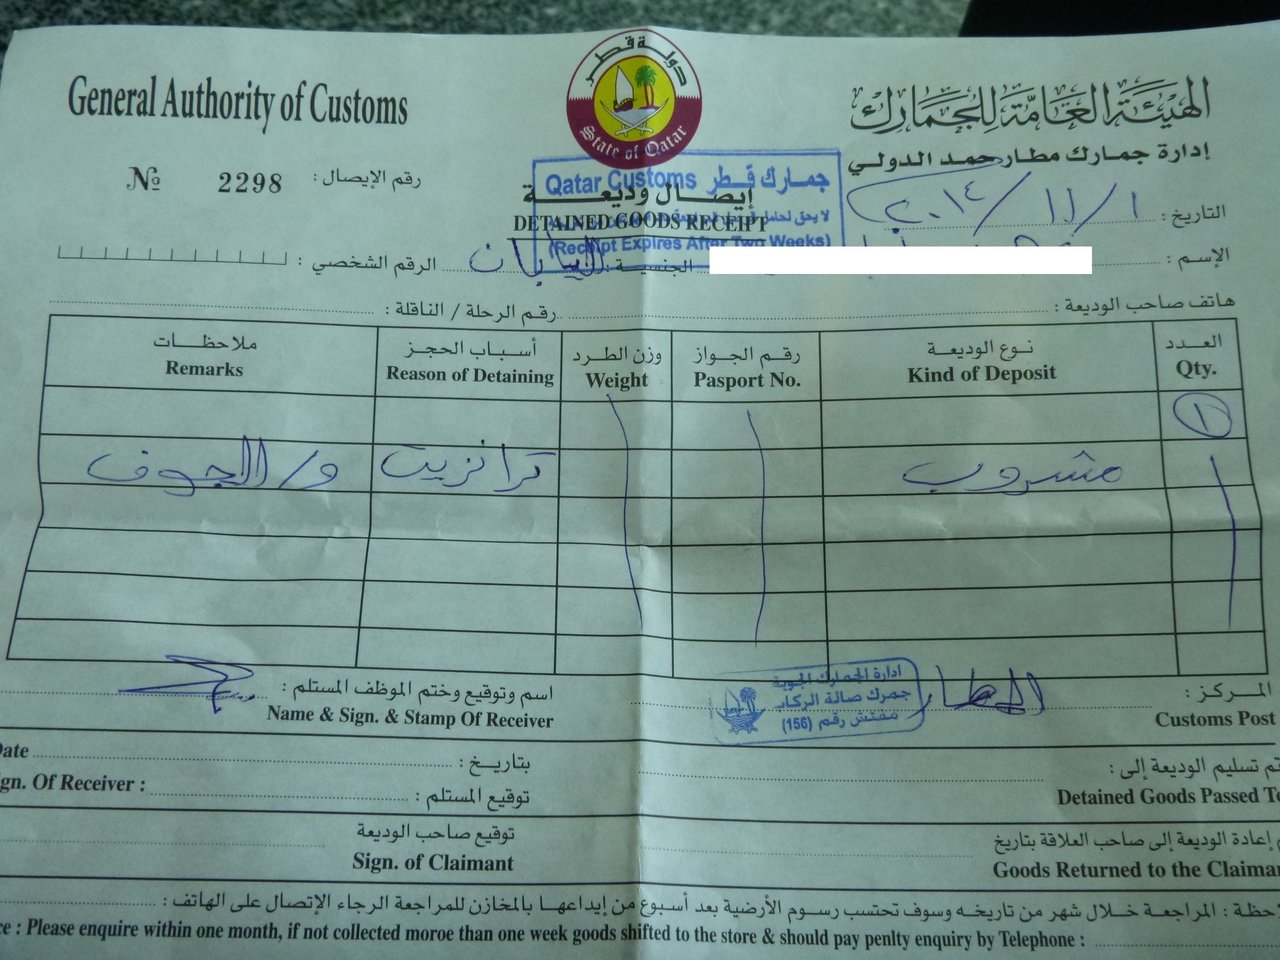 General Authority of Customs
دولة قطر
State of Qatar
الهيئة العامة للجمارك
إدارة جمارك مطار حمد الدولي
№ 2298 رقم الإيصال :
جمارك قطر Qatar Customs
إيصال وديعة
DETAINED GOODS RECEIPT
(Receipt Expires After Two Weeks)
التاريخ : ٢٠١٤/١١/١
الإسم :
الجنسية : اليابان
الرقم الشخصي :
هاتف صاحب الوديعة :
رقم الرحلة / الناقلة :
العدد نوع الوديعة رقم الجواز وزن الطرد أسباب الحجز ملاحظات
Qty. Kind of Deposit Pasport No. Weight Reason of Detaining Remarks
١
مشروب ترانزيت و/الجوف
المركز : المطار
Customs Post
ادارة الجمارك الجوية
جمرك صالة الركاب
مفتش رقم (156)
اسم وتوقيع وختم الموظف المستلم :
Name & Sign. & Stamp Of Receiver
تم تسليم الوديعة إلى :
Detained Goods Passed To
بتاريخ :
Date
توقيع المستلم :
Sign. Of Receiver :
إعادة الوديعة إلى صاحب العلاقة بتاريخ
Goods Returned to the Claimant
توقيع صاحب الوديعة
Sign. of Claimant
المراجعة خلال شهر من تاريخه وسوف تحتسب رسوم الأرضية بعد أسبوع من إيداعها بالمخازن للمراجعة الرجاء الإتصال على الهاتف :
: Please enquire within one month, if not collected moroe than one week goods shifted to the store & should pay penlty enquiry by Telephone :